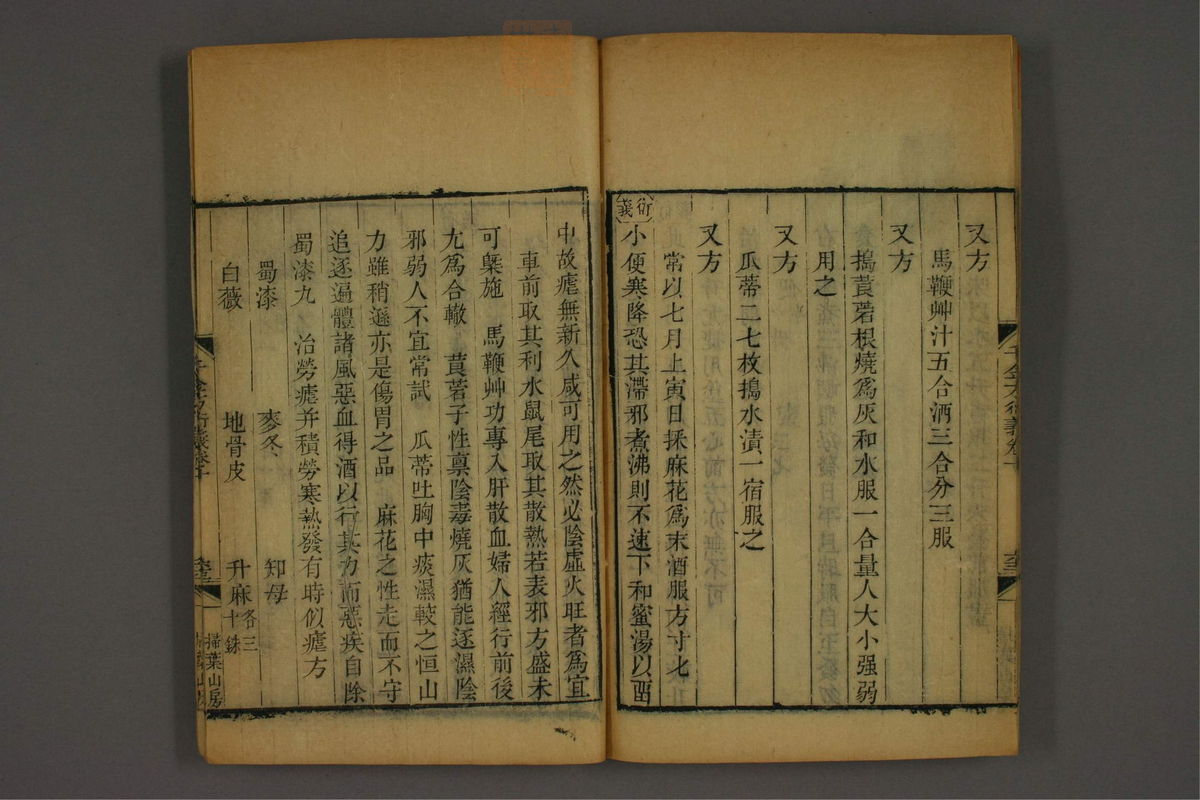 又方
馬鞭艸汁五合酒三合分三服
又方
搗莨菪根燒爲灰和水服一合量人大小强弱
用之
又方
瓜蒂二七枚搗水漬一宿服之
又方
常以七月上寅日採麻花爲末酒服方寸匕
衍義
小便寒降恐其滯邪煮沸則不速下和蜜湯以留
中故瘧無新久咸可用之然必陰虛火旺者爲宜
車前取其利水鼠尾取其散熱若表邪方盛未
可槩施 馬鞭艸功專入肝散血婦人經行前後
尤爲合轍 莨菪子性禀陰毒燒灰猶能逐濕陰
邪弱人不宜常試 瓜蒂吐胸中痰濕較之恒山
力雖稍遜亦是傷胃之品 麻花之性走而不守
追逐遍體諸風惡血得酒以行其力而惡疾自除
蜀漆丸 治勞瘧并積勞寒熱發有時似瘧方
蜀漆 麥冬 知母
白薇 地骨皮 升麻各三十銖
千金方衍義卷十
掃葉山房